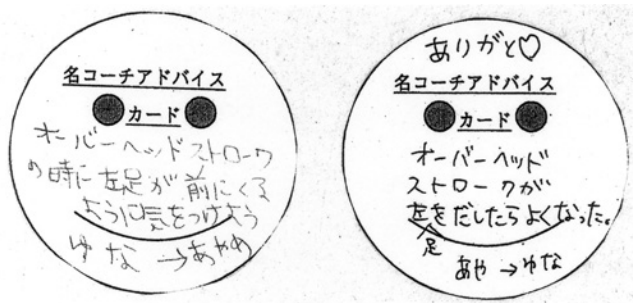 名コーチアドバイス
カード
オーバーヘッドストローク
の時に左足が前にくる
ように気をつけよう
ゆな→あやめ
ありがと♡
名コーチアドバイス
カード
オーバーヘッド
ストロークが
左足をだしたらよくなった。
あや→ゆな